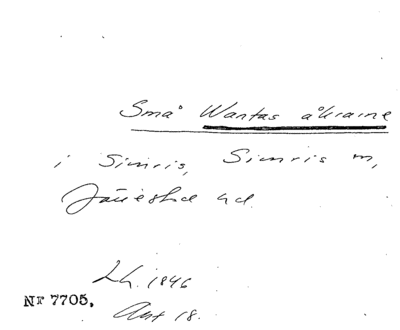 Små Wantas åkrarne
i Simris, Simris m,
Järrestad hd.
Lh. 1846
Akt 18.
NF 7705.